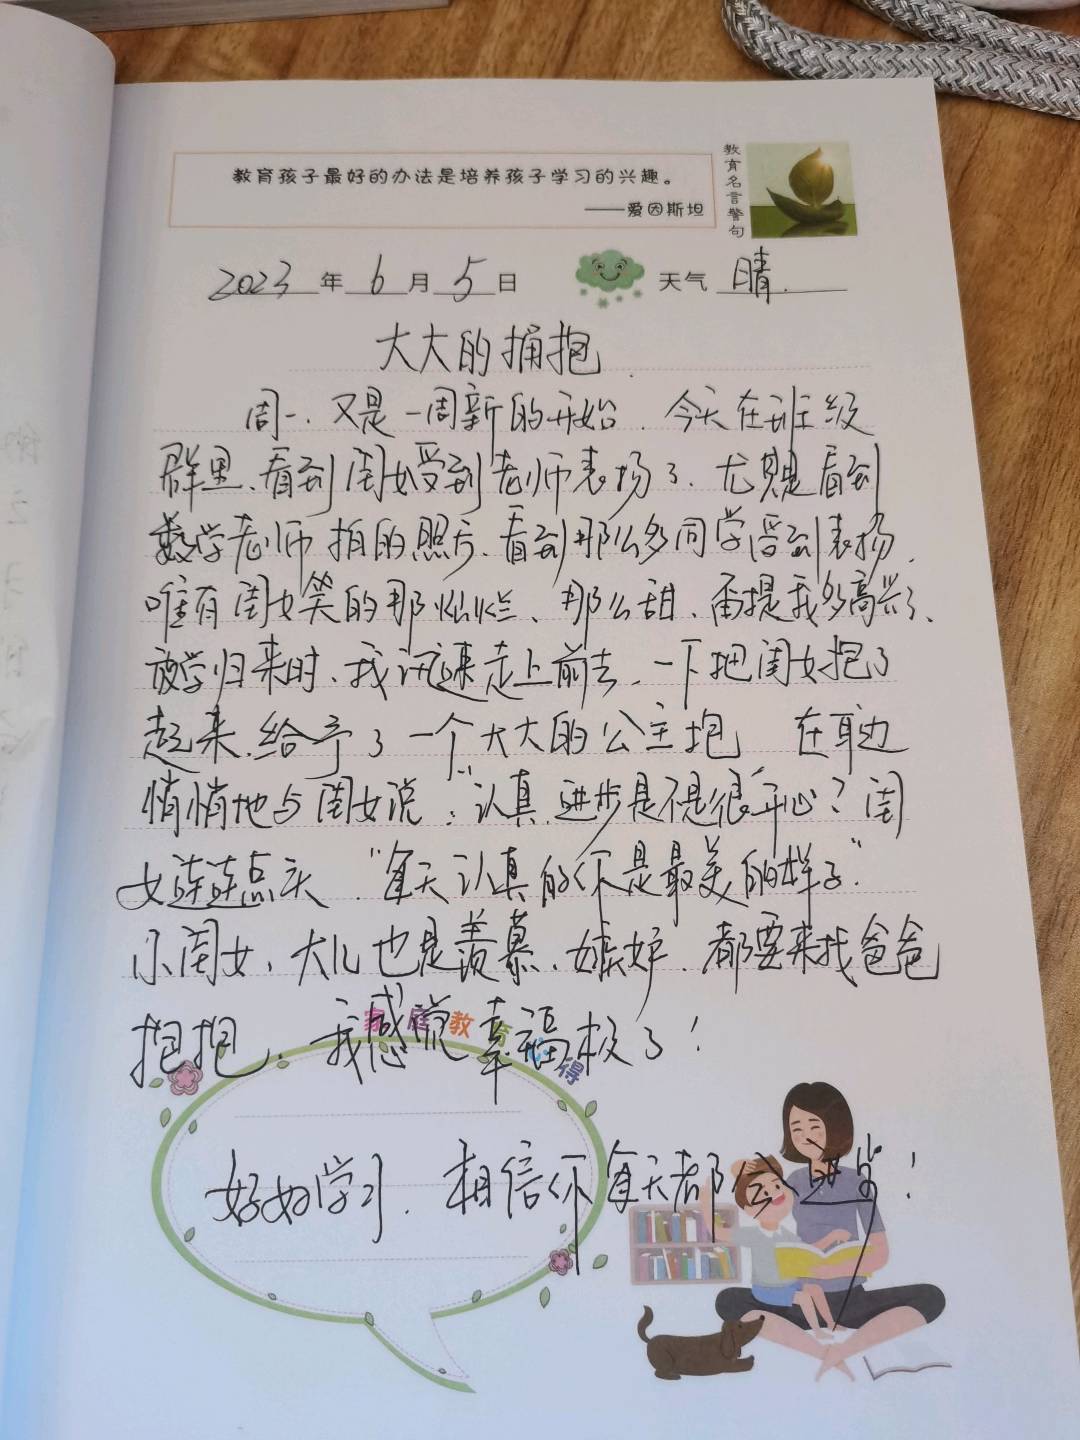 教育孩子最好的办法是培养孩子学习的兴趣。
——爱因斯坦
教育名言警句
2023年6月5日 天气 晴.
大大的拥抱
周一.又是一周新的开始.今天在班级
群里、看到闺女受到老师表扬了.尤其是看到
数学老师拍的照片.看到那么多同学受到表扬.
唯有闺女笑的那么灿烂、那么甜.甭提我多高兴了、
放学归来时、我迅速走上前去.一下把闺女抱了
起来.给予了一个大大的公主抱 在耳边
悄悄地与闺女说:“认真.进步是不是很开心?闺
女连连点头.“每天认真的你是最美的样子”
小闺女、大儿也是羡慕.嫉妒.都要来找爸爸
抱抱.我感觉幸福极了!
家庭教育心得
好好学习.相信你每天都会进步!